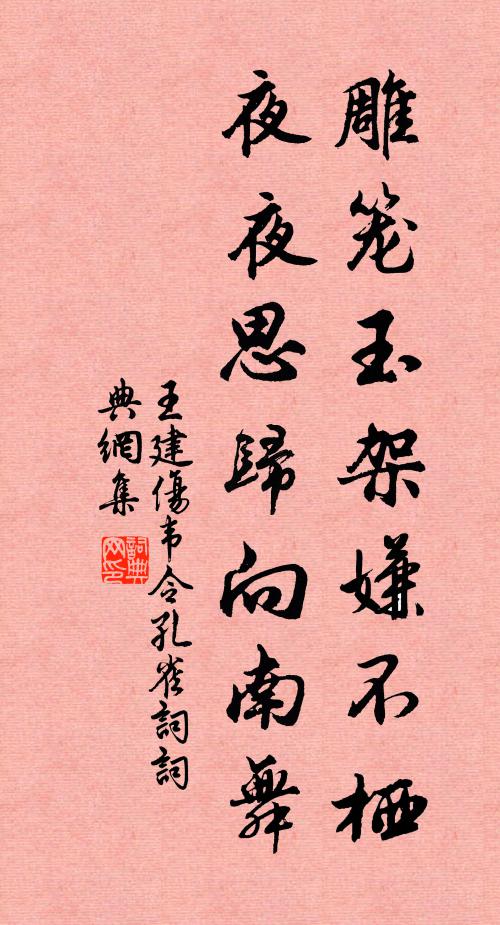 雕笼玉架嫌不栖
夜夜思歸向南舞
王建傷韦令孔雀詞詞
典網集
詞典
网印